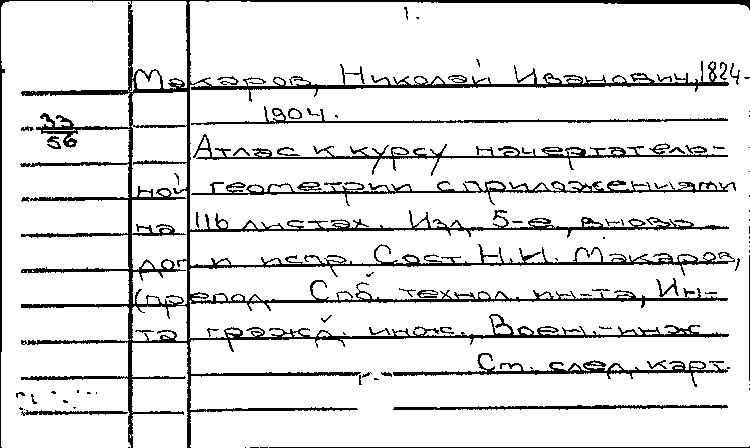 1.
Макаров, Николай Иванович, 1824-
1904.
33
56
Атлас к курсу начертатель-
ной геометрии с приложениями
на 116 листах. Изд. 5-е, вновь
доп. и испр. Сост. Н.И. Макаров,
(препод. Спб. технол. ин-та, Ин-
та гражд. инж., Воен.-инж
См. след. карт.